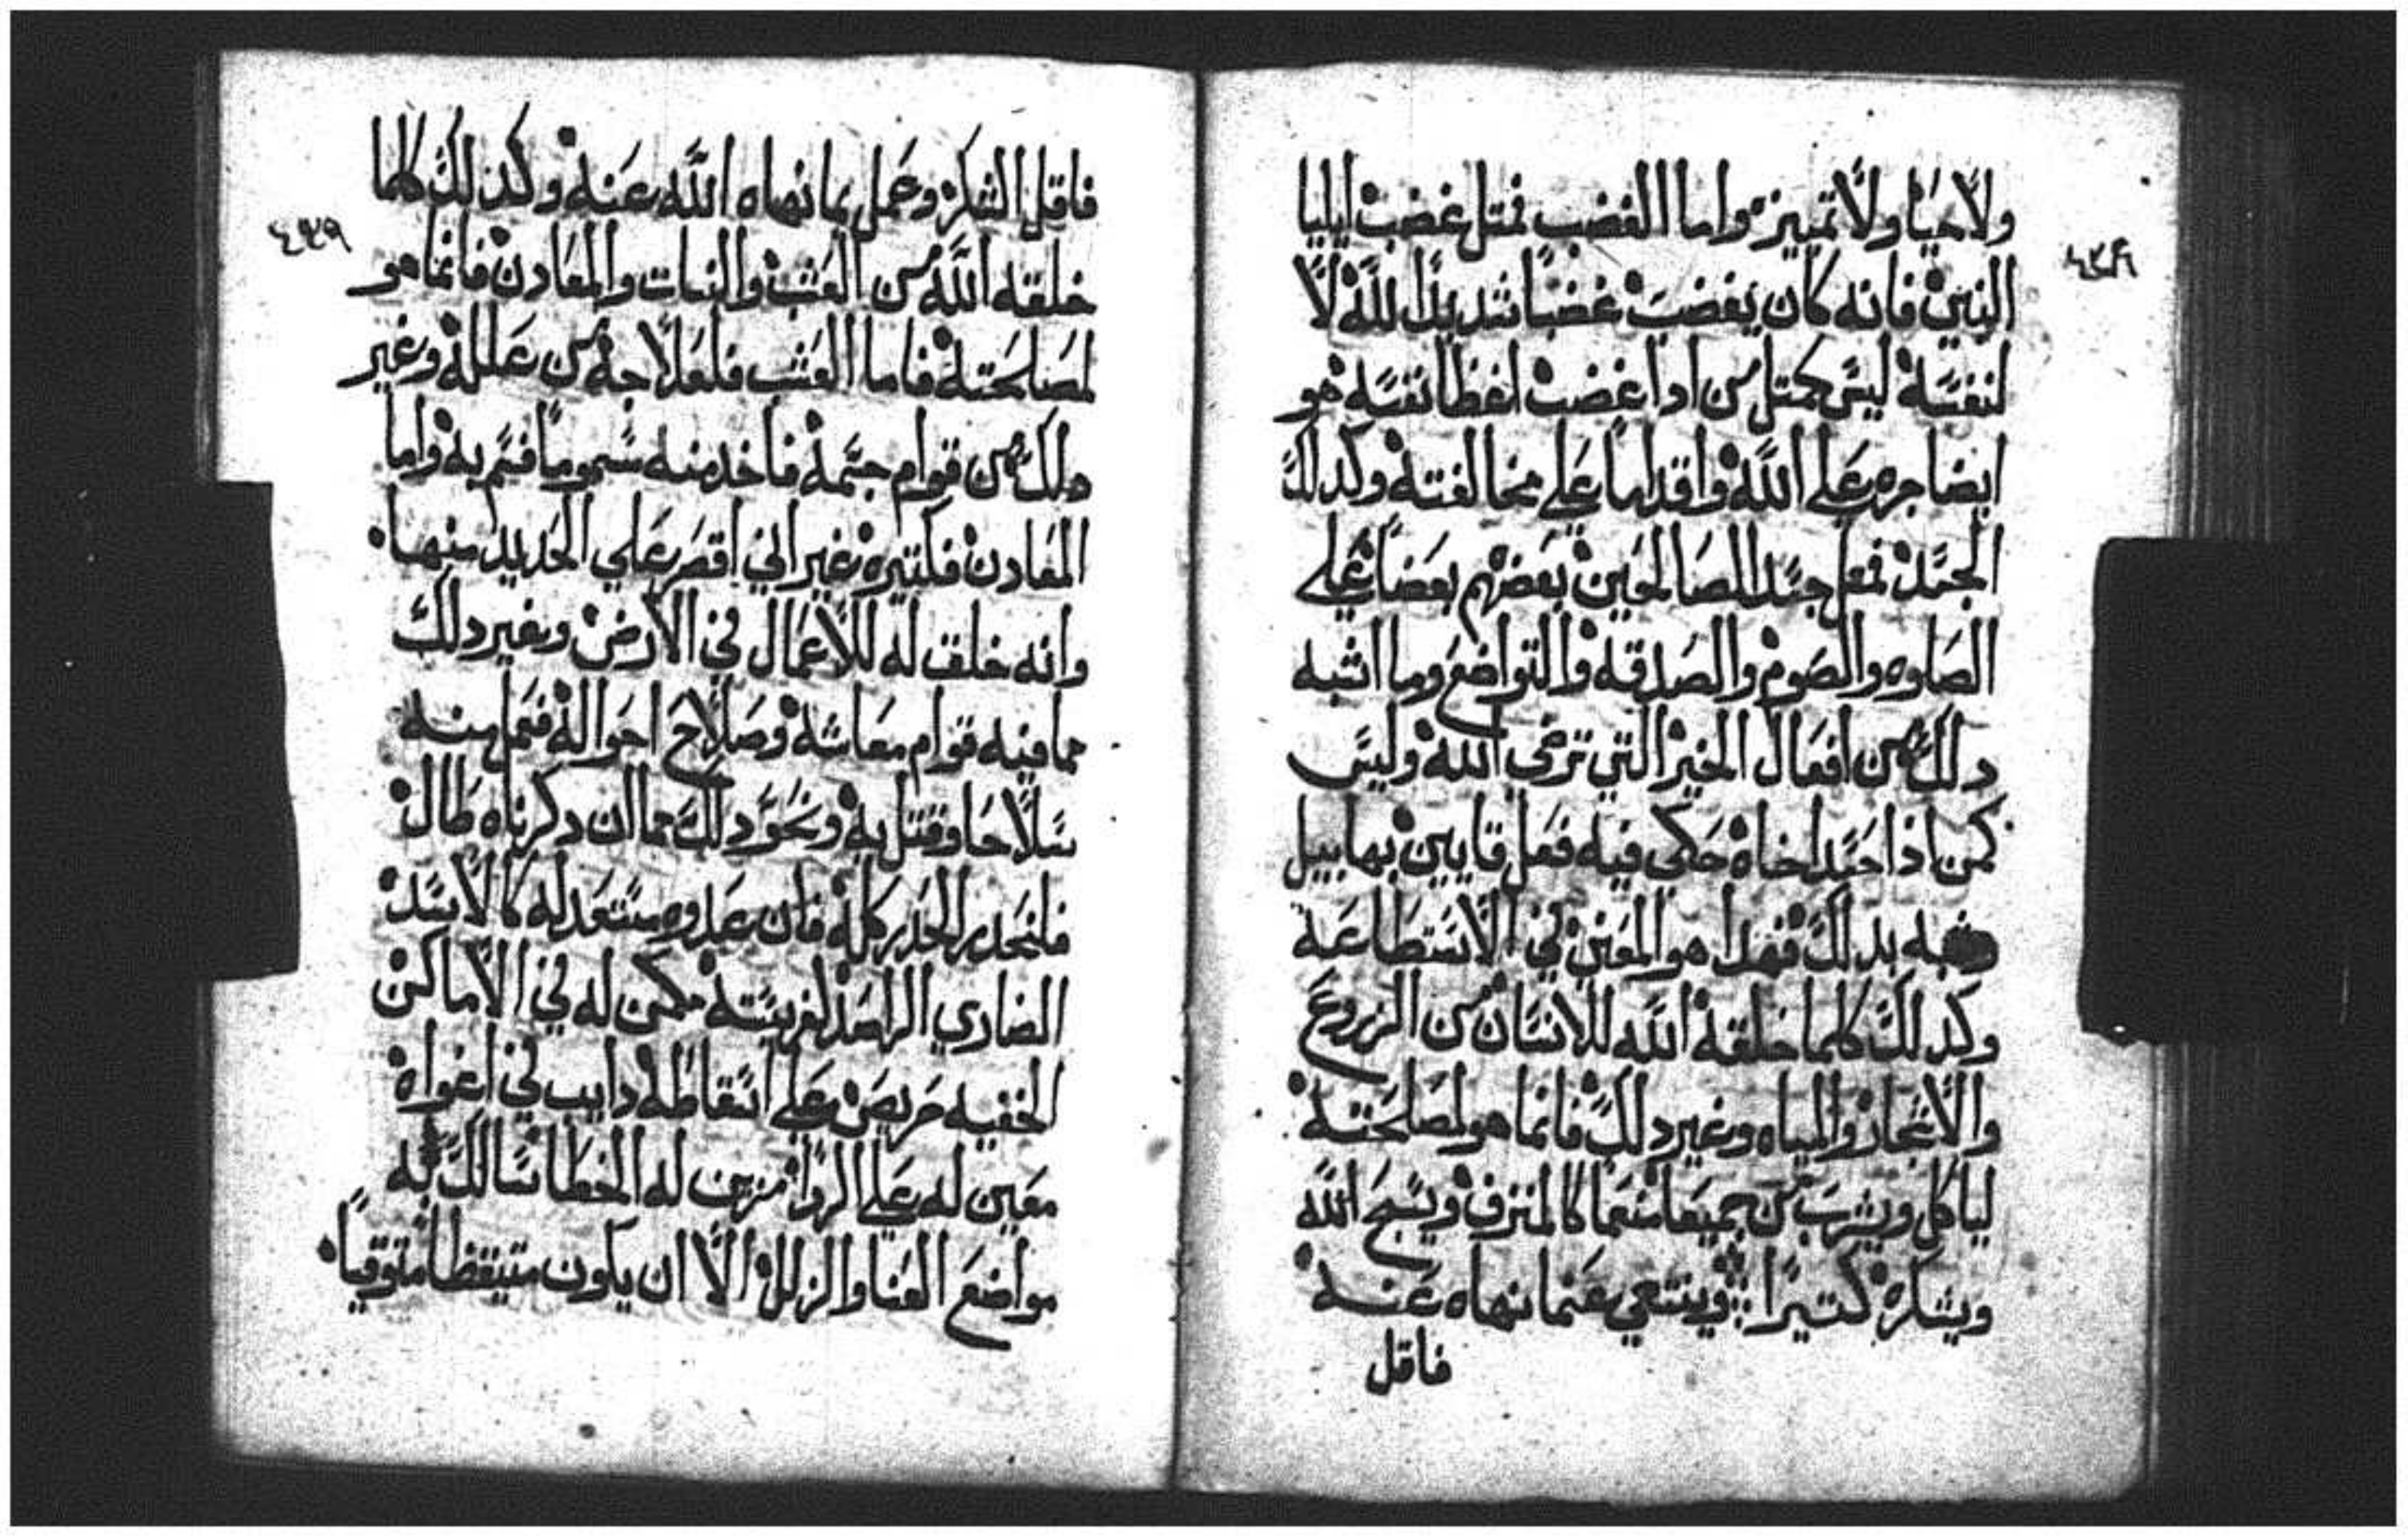 ولا حيا ولا تمييز واما الغضب فمتل غضب ايليا
النبي فانه كان يغضب غضبا شديدا لله لا
لنفسه ليس كمتل من ادا غضب لغظا نفسه هو
ايضا جره علي الله واقداما علي مخالفته وكدلك
الجسد فمتل حسد الصالحين بعضهم بعضا علي
الصلوه والصوم والصدقه والتواضع وما اشبه
دلك من افعال الخير التي ترضي الله وليس
كمن اذا حسد اخاه حكي فيه فعل قايين بهابيل
شبه بدلك فهدا هو المعني في الاستطاعه
وكدلك كلما خلقه الله للانسان من الزروع
والاشجار والمياه وغير دلك فانما هو لمصلحته
لياكل ويشرب من جميعها متنعما كالمترف ويسبح الله
ويشكره كتيرا وينتهي عما نهاه عنه
فاقل
٤٣٩
فاقل الشكر وعمل بما نهاه الله عنه وكدلك كلما
خلقه الله من العشب والنبات والمعادن فانما هو
لمصالحته فاما العشب فلعلاجه من علله وغير
دلك من قوام جسمه فاخد منه سموما فسم به واما
المعادن فكتيره غير اني اقصر علي الحديد منها
وانه خلقت له للاعمال في الارض وغير دلك
مما فيه قوام معاشه وصلاح احواله فعمل منه
سلاحا وقتل به ونحو دلك مما ان دكرناه طال
فليحدر الحدر كله فان عدوه مستعد له كالاسد
الضاري الراصد لفريسته مكمن له في الاماكن
الخفيه حريص علي اسقاطه دايب في اغواه
معين له علي الردا مزين له الخطا سالك به
مواضع العنا والزلل الا ان يكون متيقظا متوقيا